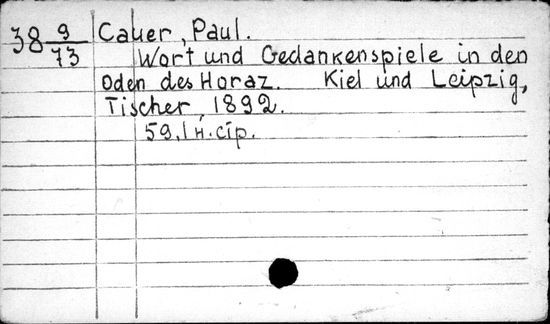 38 9/73 Cauer, Paul.
Wort und Gedankenspiele in den
Oden des Horaz. Kiel und Leipzig,
Tischer, 1892.
59, I н. стр.